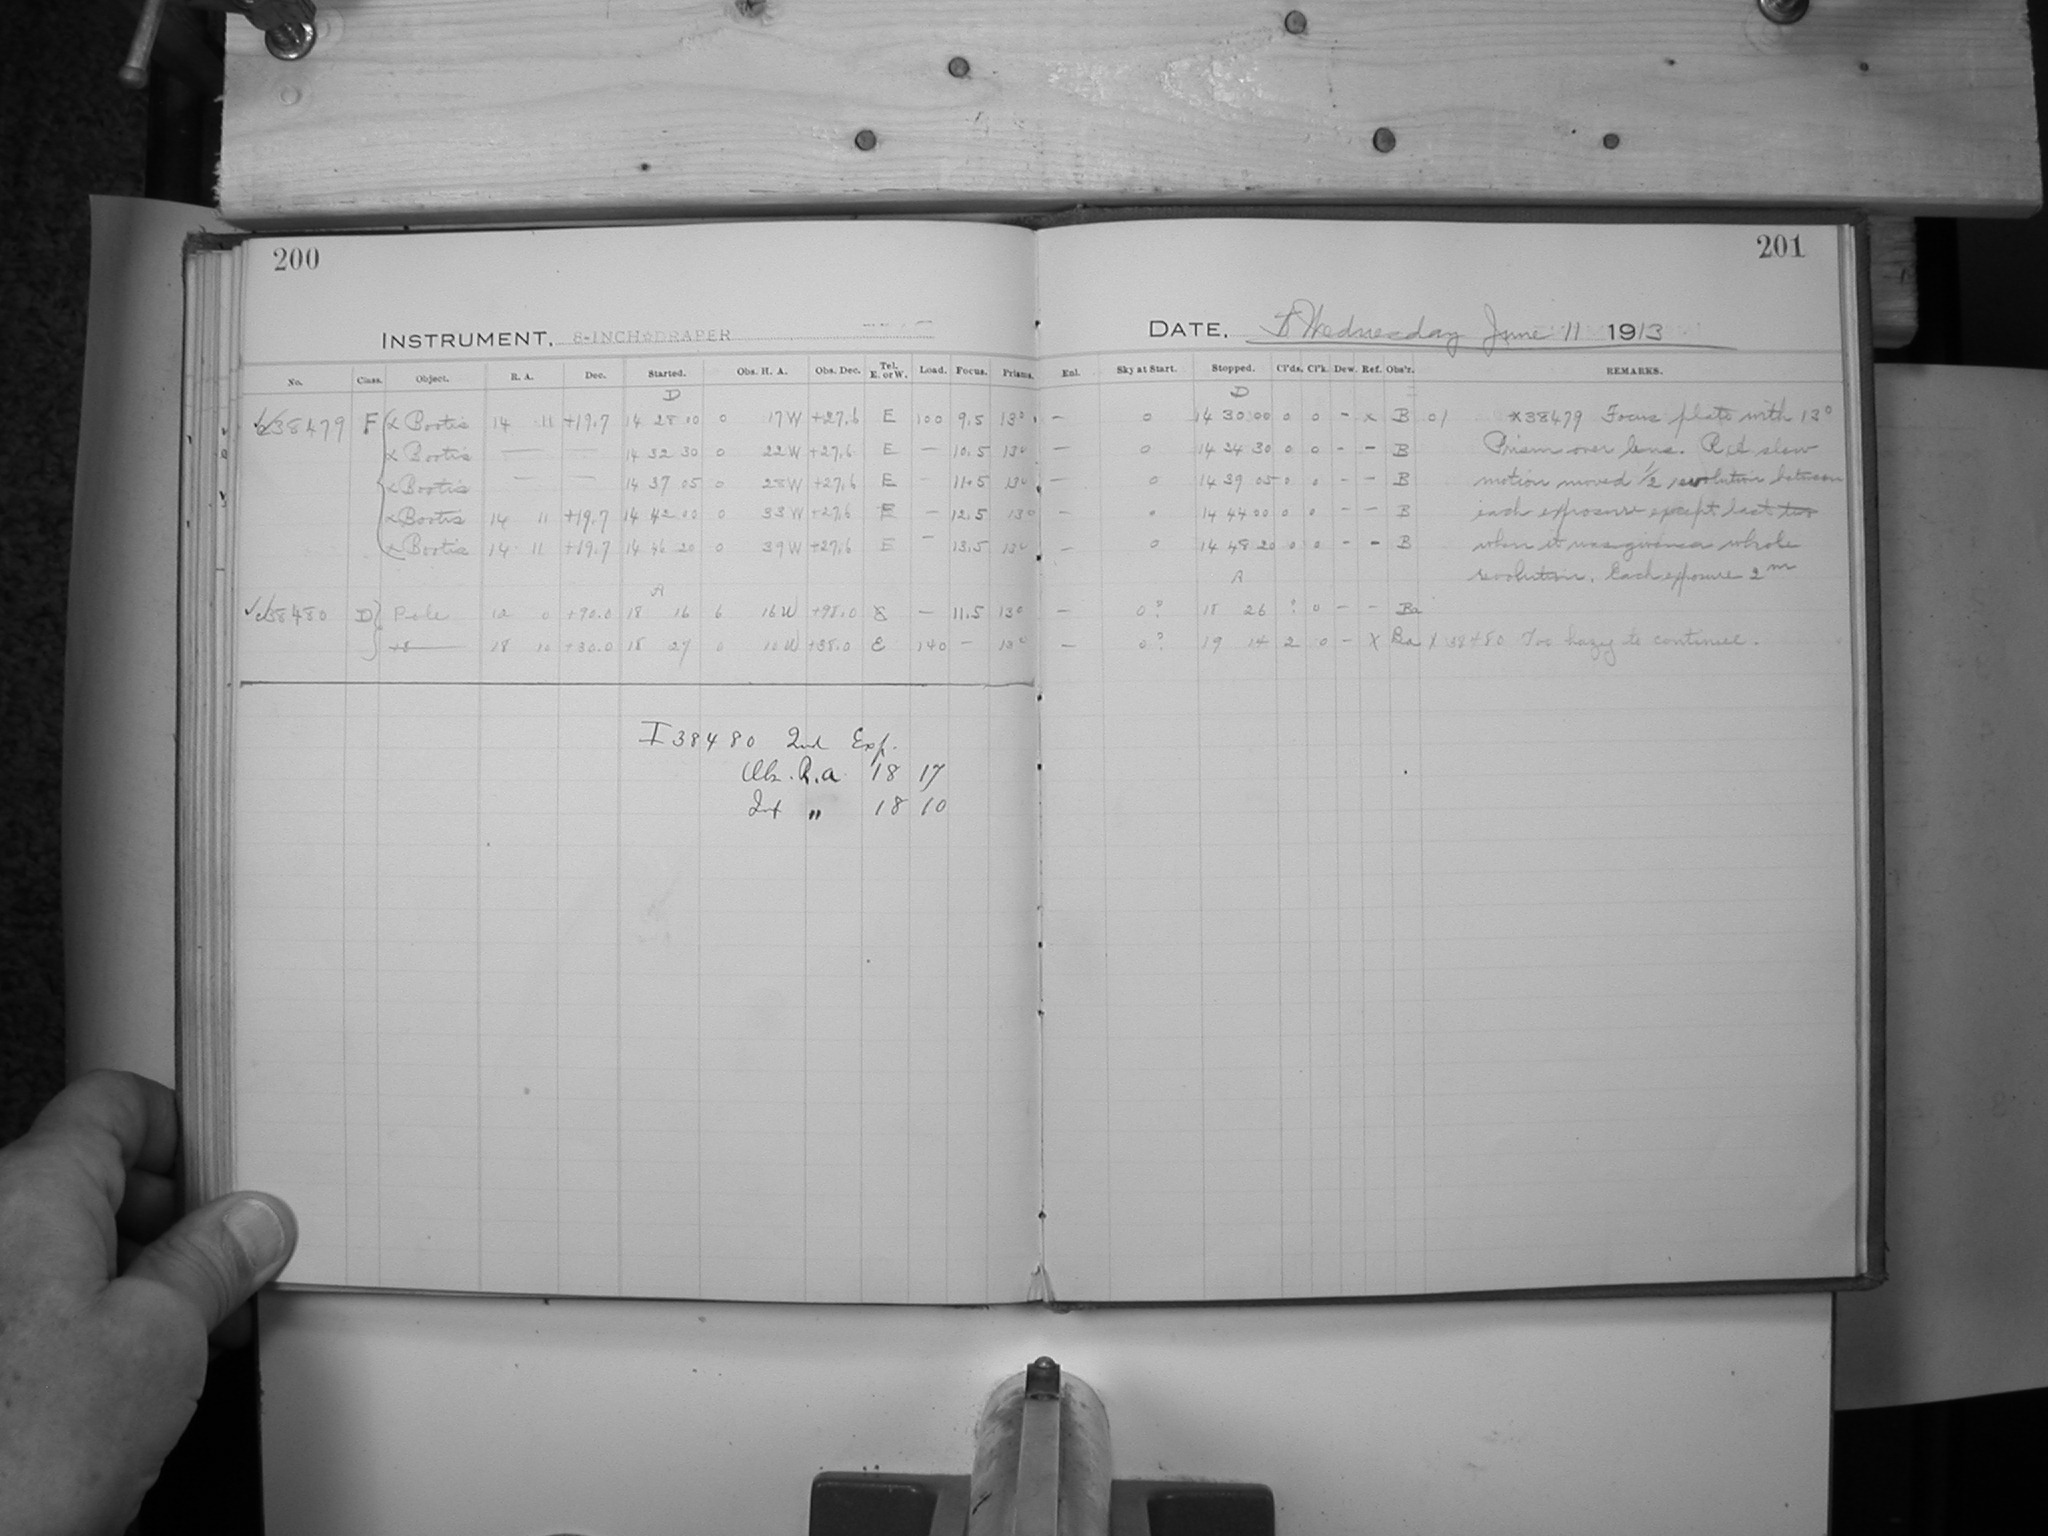 200
201
INSTRUMENT, 8-INCH DRAPER
DATE, Wednesday June 11 1913
No. Class. Object. R. A. Dec. Started. Obs. H. A. Obs. Dec. Tel. E. or W. Load. Focus. Prisms. Enl. Sky at Start. Stopped. Cl'ds. Cl'k. Dew. Ref. Obs'r. REMARKS.
D D
38479 F α Bootis 14 11 +19.7 14 28 00 0 17W +27.6 E 100 9.5 13° — 0 14 30 00 0 0 - x B x38479 Focus plate with 13°
α Bootis — — 14 32 30 0 22W +27.6 E — 10.5 13° — 0 14 34 30 0 0 - - B Prism over lens. R.A slow
α Bootis — — 14 37 05 0 28W +27.6 E — 11.5 13° — 0 14 39 05 0 0 - - B motion moved 1/2 revolution between
α Bootis 14 11 +19.7 14 42 00 0 33W +27.6 E — 12.5 13° — 0 14 44 00 0 0 - - B each exposure except last two
α Bootis 14 11 +19.7 14 46 20 0 39W +27.6 E — 13.5 13° — 0 14 48 20 0 0 - - B when it was given a whole
revolution. Each exposure 2m
A A
38480 D Pole 12 0 +90.0 18 16 6 16W +98.0 — 11.5 13° — 0? 18 26 ? 0 - - Ba
18 10 +30.0 18 27 0 10W +38.0 E 140 — 13° — 0? 19 14 2 0 - x Ba x 38480 Too hazy to continue.
I 38480 2nd Exp.
Obs. R.a. 18 17
Int " 18 10